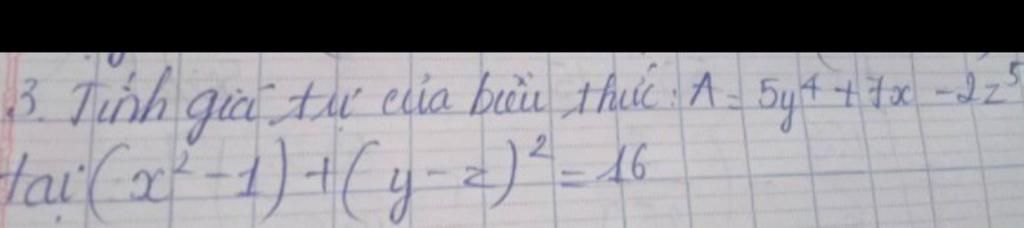 3. Tính giá trị của biểu thức: A = 5y⁴ + 7x - 2z⁵
tại (x² - 1) + (y - z)² = 16